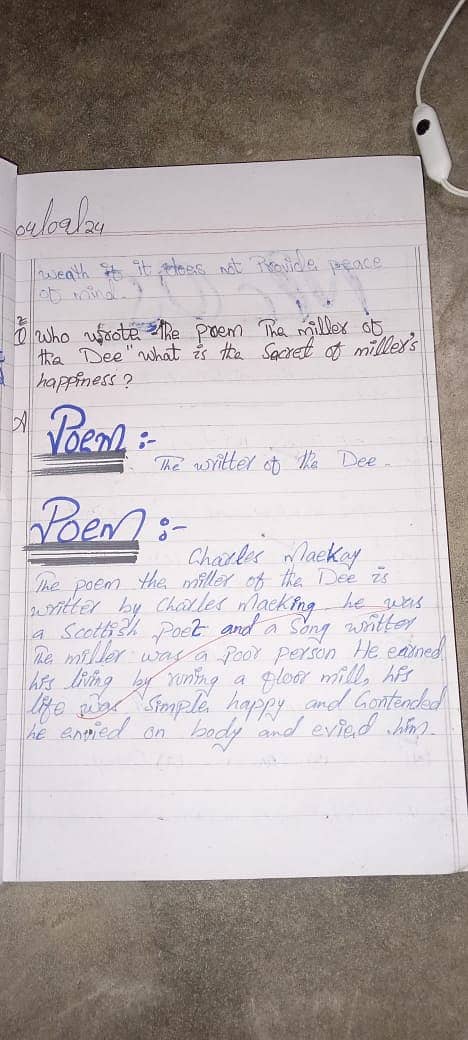 04/09/24
weath it does not Provide peace
of mind.
Q who wrote "The poem The miller of
the Dee" what is the Secret of miller's
happiness ?
A
Poem :-
The writter of the Dee.
Poem :-
Charles Maekay
The poem the miller of the Dee is
writter by Charles Macking. he was
a Scottish Poet and a Song writter
The miller was a Poor person He earned
his living by runing a floor mill, his
life was Simple, happy and Contended
he envied on body and evied him.